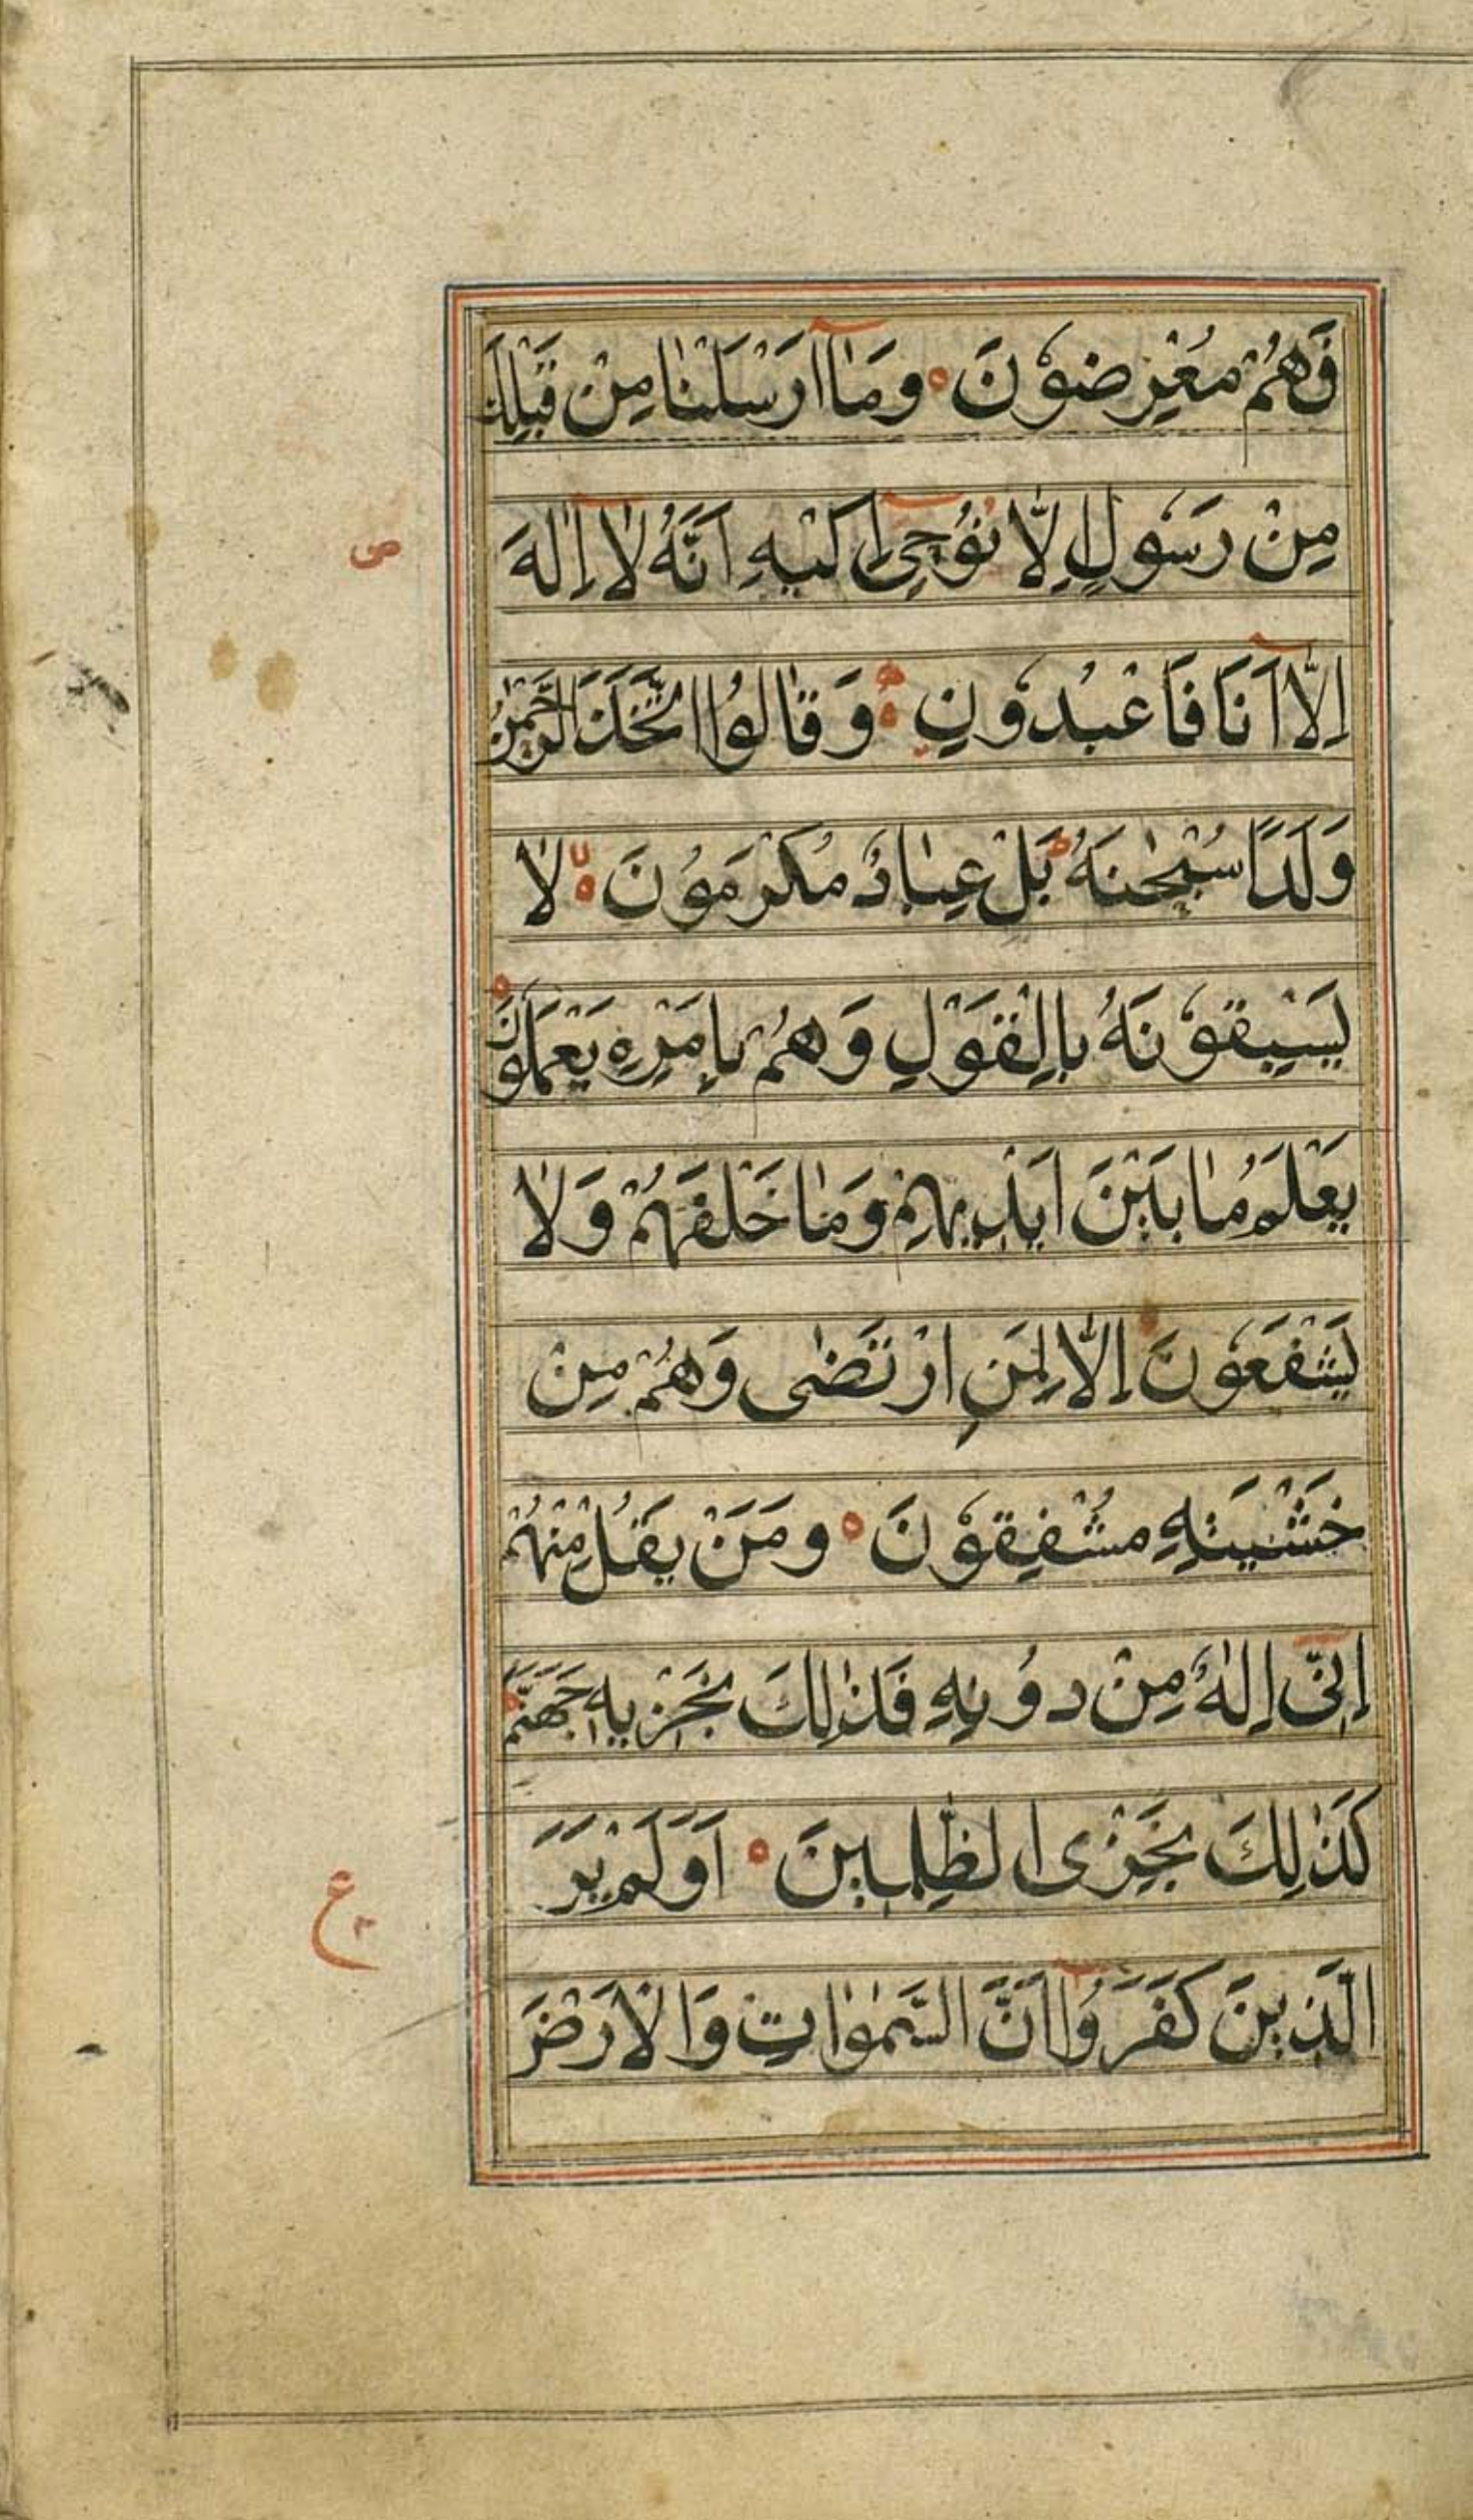 فَهُمْ مُعْرِضُوْنَ ۝ وَمَاۤ اَرْسَلْنَا مِنْ قَبْلِكَ
مِنْ رَسُوْلٍ اِلَّا نُوْحِیْۤ اِلَيْهِ اَنَّهُ لَاۤ اِلٰهَ
ص
اِلَّاۤ اَنَا فَاعْبُدُوْنِ ۝ وَقَالُوا اتَّخَذَ الرَّحْمٰنُ
وَلَدًا سُبْحٰنَهُ ط بَلْ عِبَادٌ مُكْرَمُوْنَ ۝ لا لَا
يَسْبِقُوْنَهُ بِالْقَوْلِ وَهُمْ بِاَمْرِهِ يَعْمَلُوْنَ ۝
يَعْلَمُ مَا بَيْنَ اَيْدِيْهِمْ وَمَا خَلْفَهُمْ وَلَا
يَشْفَعُوْنَ اِلَّا لِمَنِ ارْتَضٰى وَهُمْ مِنْ
خَشْيَتِهِ مُشْفِقُوْنَ ۝ وَمَنْ يَقُلْ مِنْهُمْ
اِنِّیْۤ اِلٰهٌ مِنْ دُوْنِهِ فَذٰلِكَ نَجْزِيْهِ جَهَنَّمَ ط
كَذٰلِكَ نَجْزِى الظّٰلِمِيْنَ ۝ اَوَلَمْ يَرَ
ع
الَّذِيْنَ كَفَرُوْۤا اَنَّ السَّمٰوَاتِ وَالْاَرْضَ